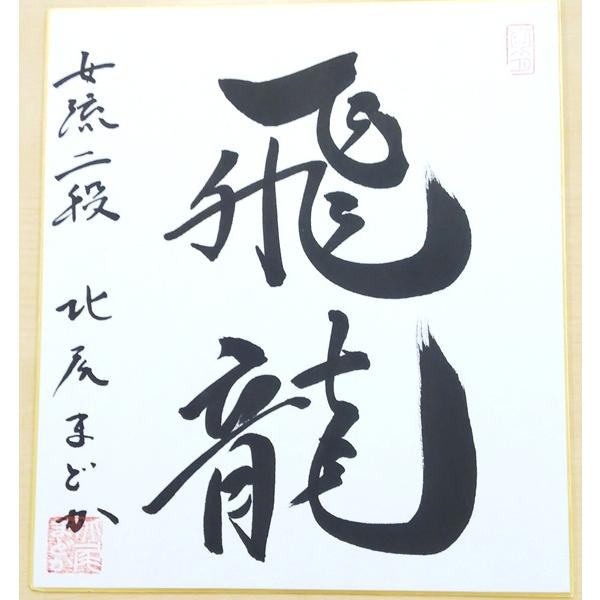 飛龍
女流二段 北尾まどか